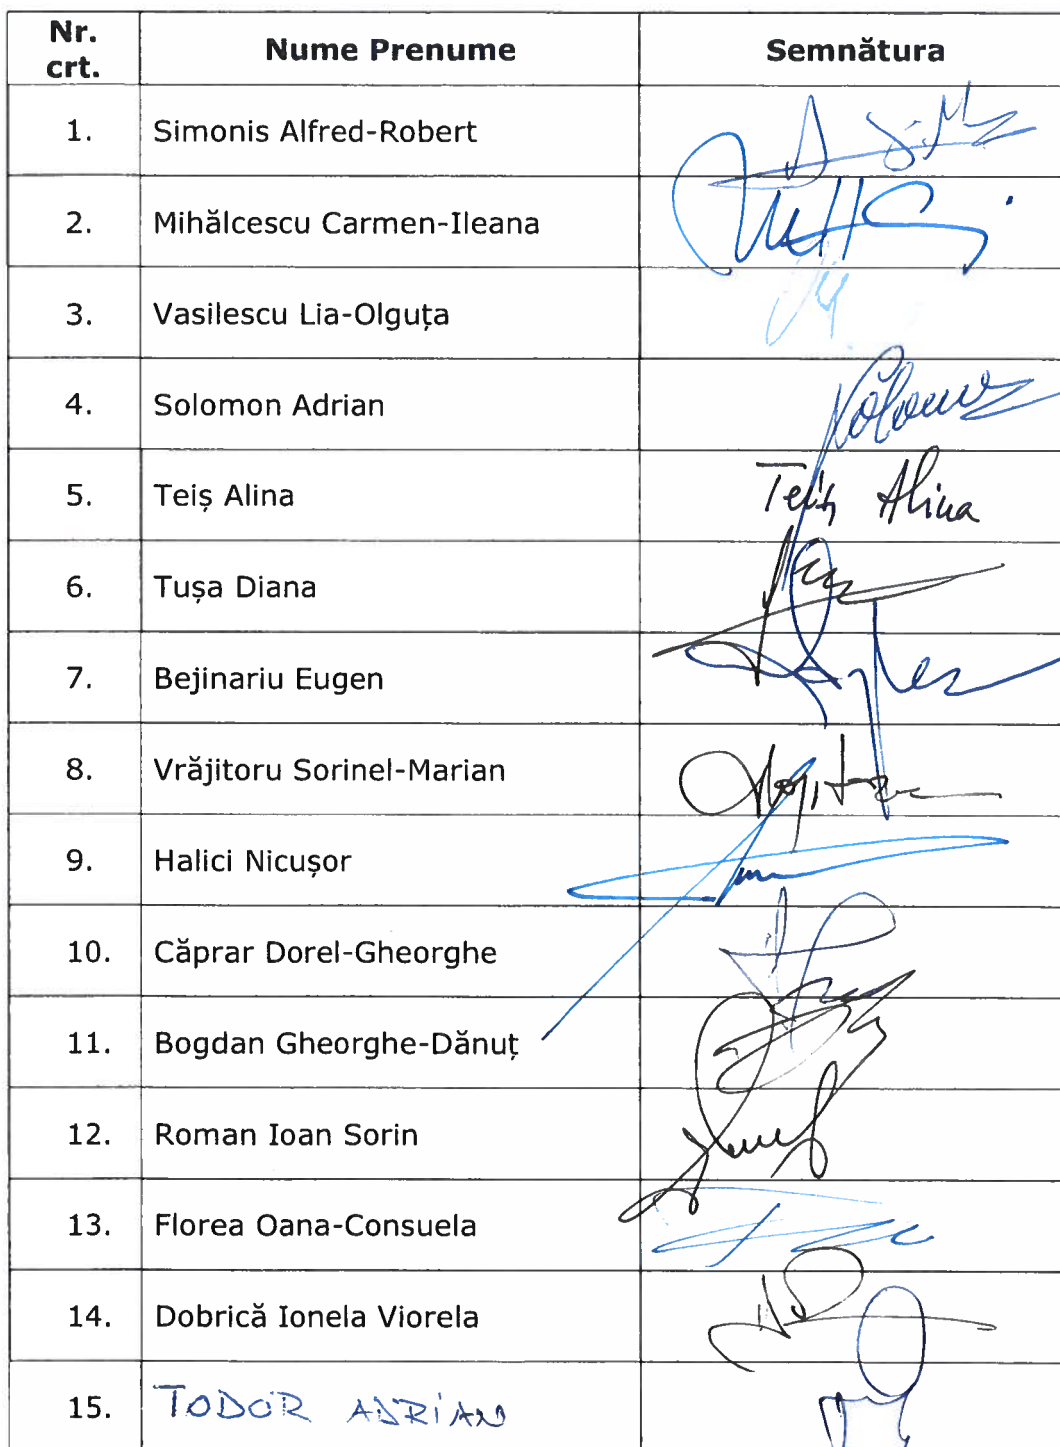 Nr. crt. Nume Prenume Semnătura
1. Simonis Alfred-Robert
2. Mihălcescu Carmen-Ileana
3. Vasilescu Lia-Olguța
4. Solomon Adrian
5. Teiș Alina Teiș Alina
6. Tușa Diana
7. Bejinariu Eugen
8. Vrăjitoru Sorinel-Marian
9. Halici Nicușor
10. Căprar Dorel-Gheorghe
11. Bogdan Gheorghe-Dănuț
12. Roman Ioan Sorin
13. Florea Oana-Consuela
14. Dobrică Ionela Viorela
15. TODOR ADRIAN